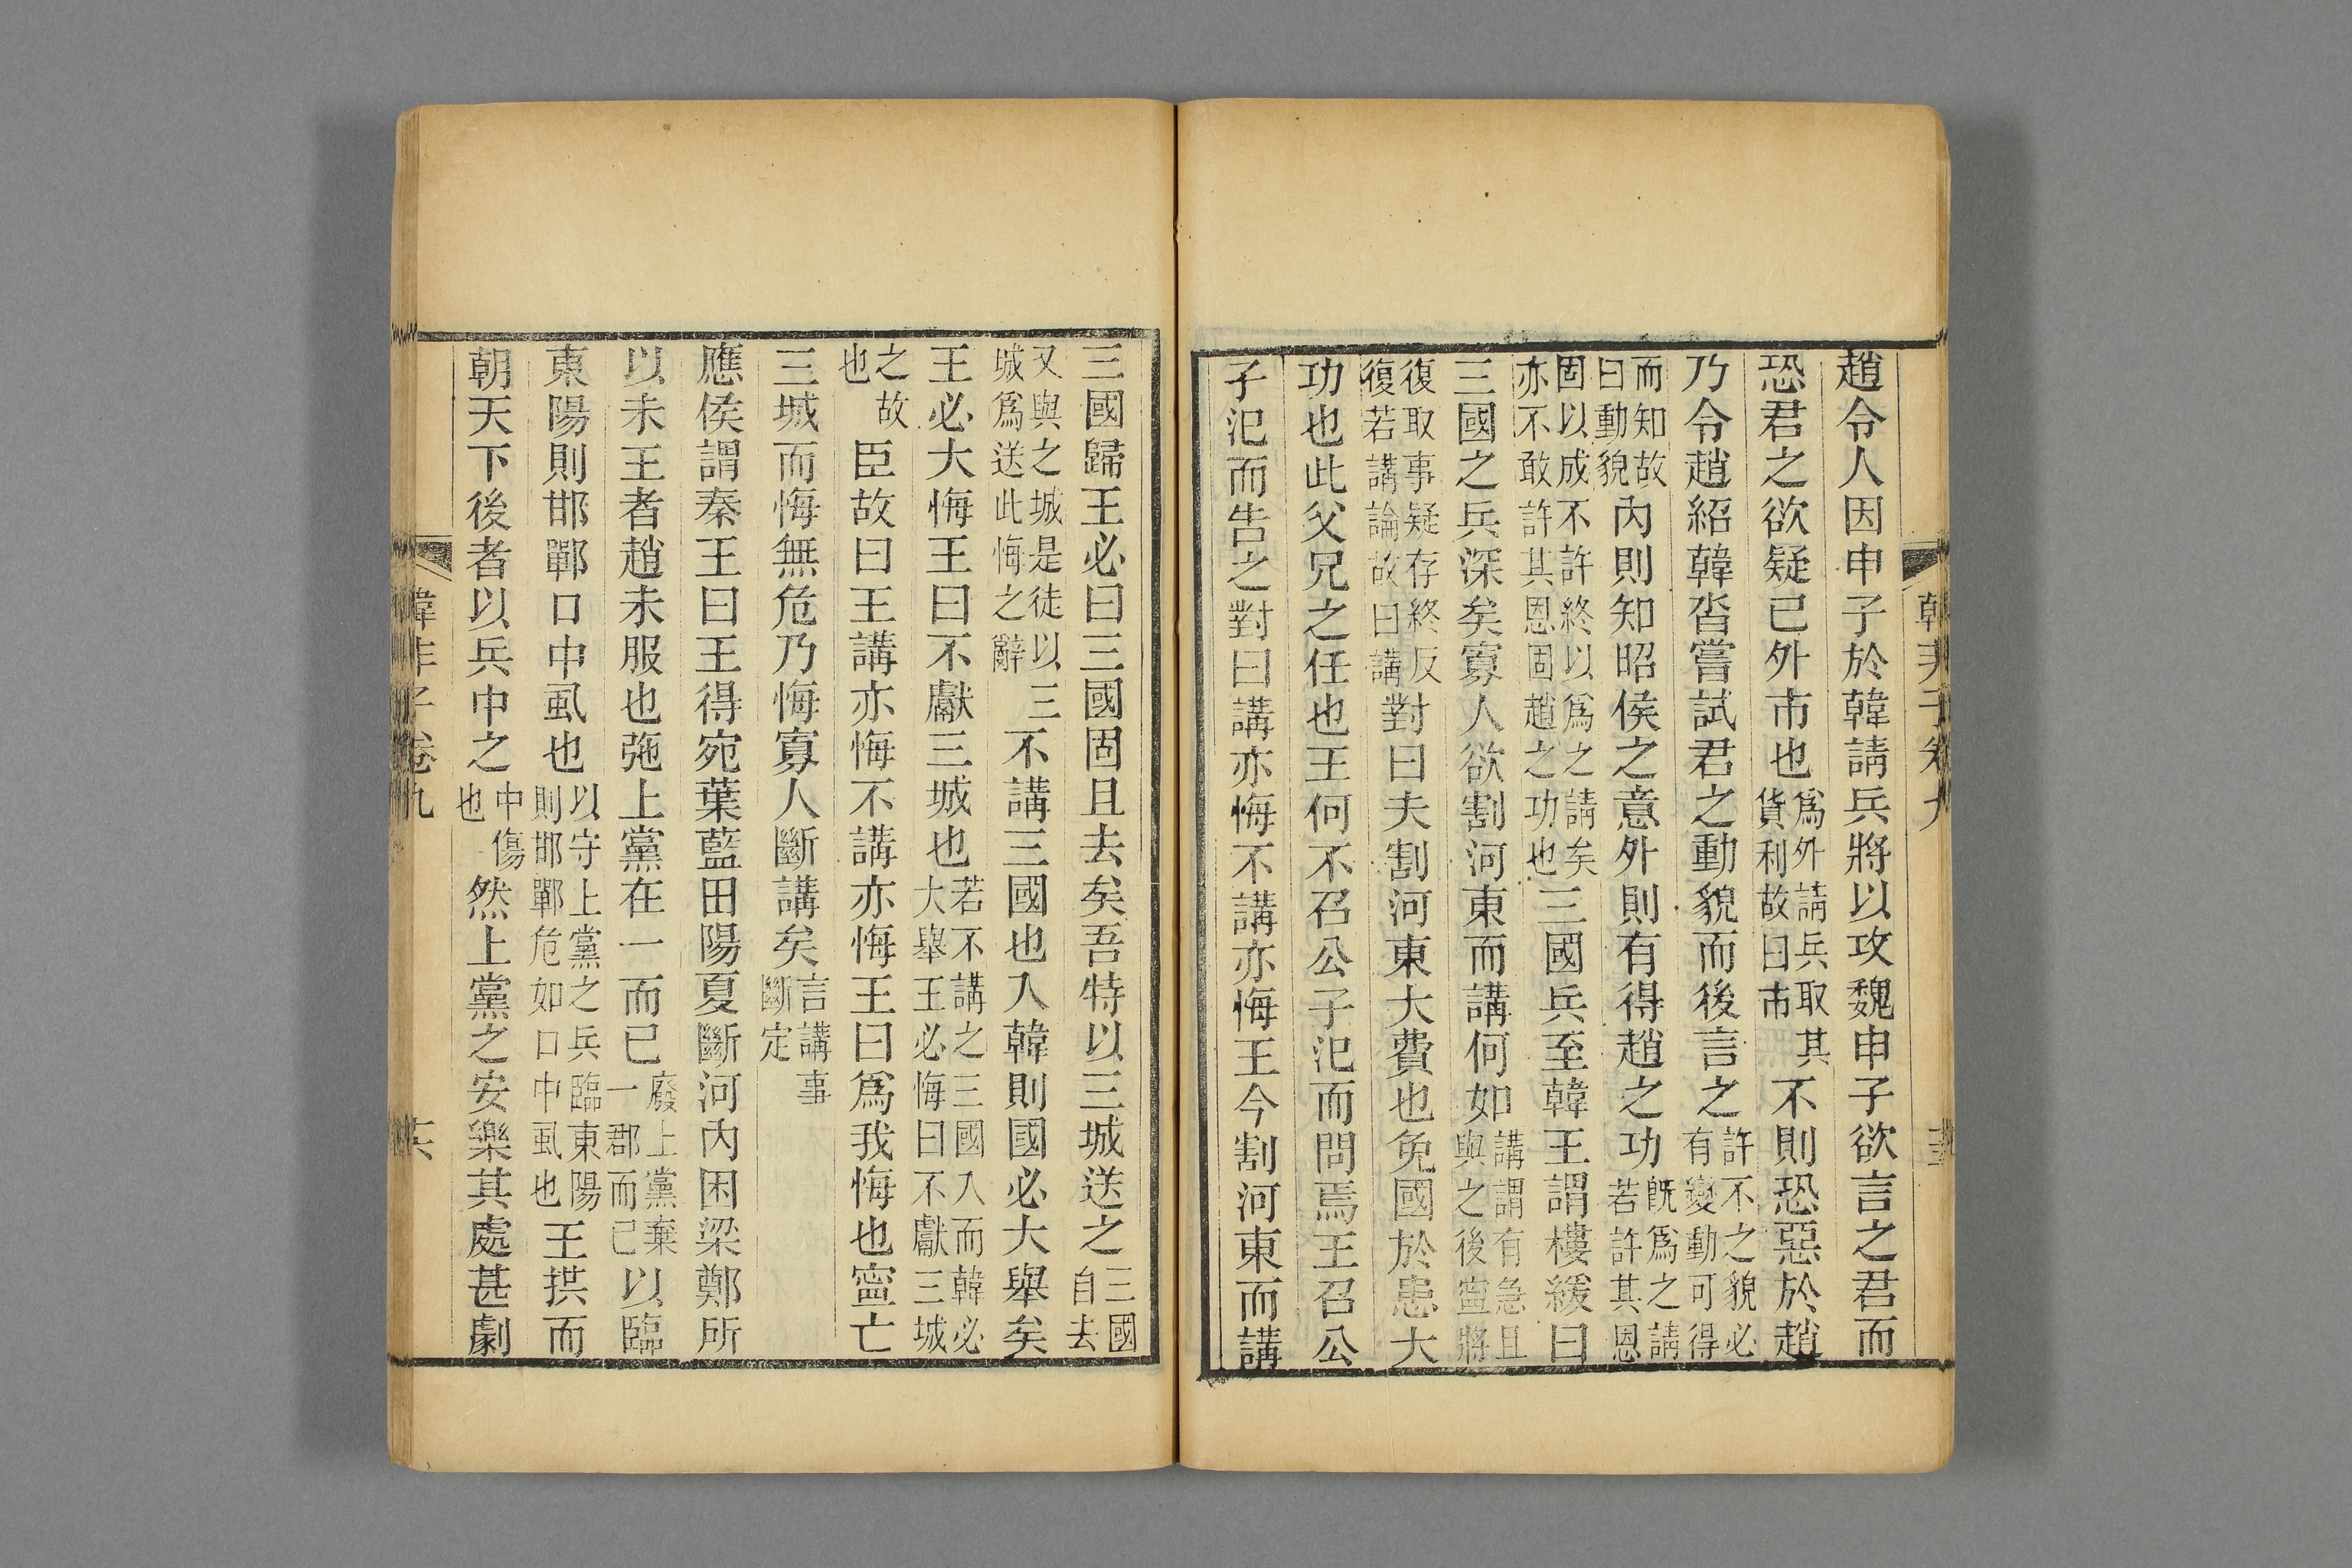 趙令人因申子於韓請兵將以攻魏申子欲言之君而
恐君之欲疑已外市也爲外請兵取其貨利故曰市不則恐惡於趙
乃令趙紹韓沓嘗試君之動貌而後言之許不之貌必有變動可得
而知故曰動貌內則知昭侯之意外則有得趙之功旣爲之請若許其恩
固以成不許終以爲之請矣亦不敢許其恩固趙之功也三國兵至韓王謂樓緩曰
三國之兵深矣寡人欲割河東而講何如講謂有急且與之後寍將
復取事疑存終反復若講論故曰講對曰夫割河東大費也免國於患大
功也此父兄之任也王何不召公子汜而問焉王召公
子汜而告之對曰講亦悔不講亦悔王今割河東而講
三國歸王必曰三國固且去矣吾特以三城送之三國自去
又與之城是徒以三城爲送此悔之辭不講三國也入韓則國必大舉矣
王必大悔王曰不獻三城也若不講之三國入而韓必大舉王必悔曰不獻三城
之故也臣故曰王講亦悔不講亦悔王曰爲我悔也寍亡
三城而悔無危乃悔寡人斷講矣言講事斷定
應侯謂秦王曰王得宛葉藍田陽夏斷河內困梁鄭所
以未王者趙未服也弛上黨在一而已廢上黨棄一郡而已以臨
東陽則邯鄲口中虱也以守上黨之兵臨東陽則邯鄲危如口中虱也王拱而
朝天下後者以兵中之中傷也然上黨之安樂其處甚劇
韓非子卷九